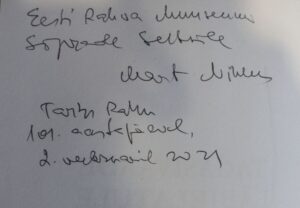 Eesti Rahva Muuseumi
Sõprade Seltsile
Mart
Tartu Rahu
101. aastapäeval,
2. veebruaril 2021